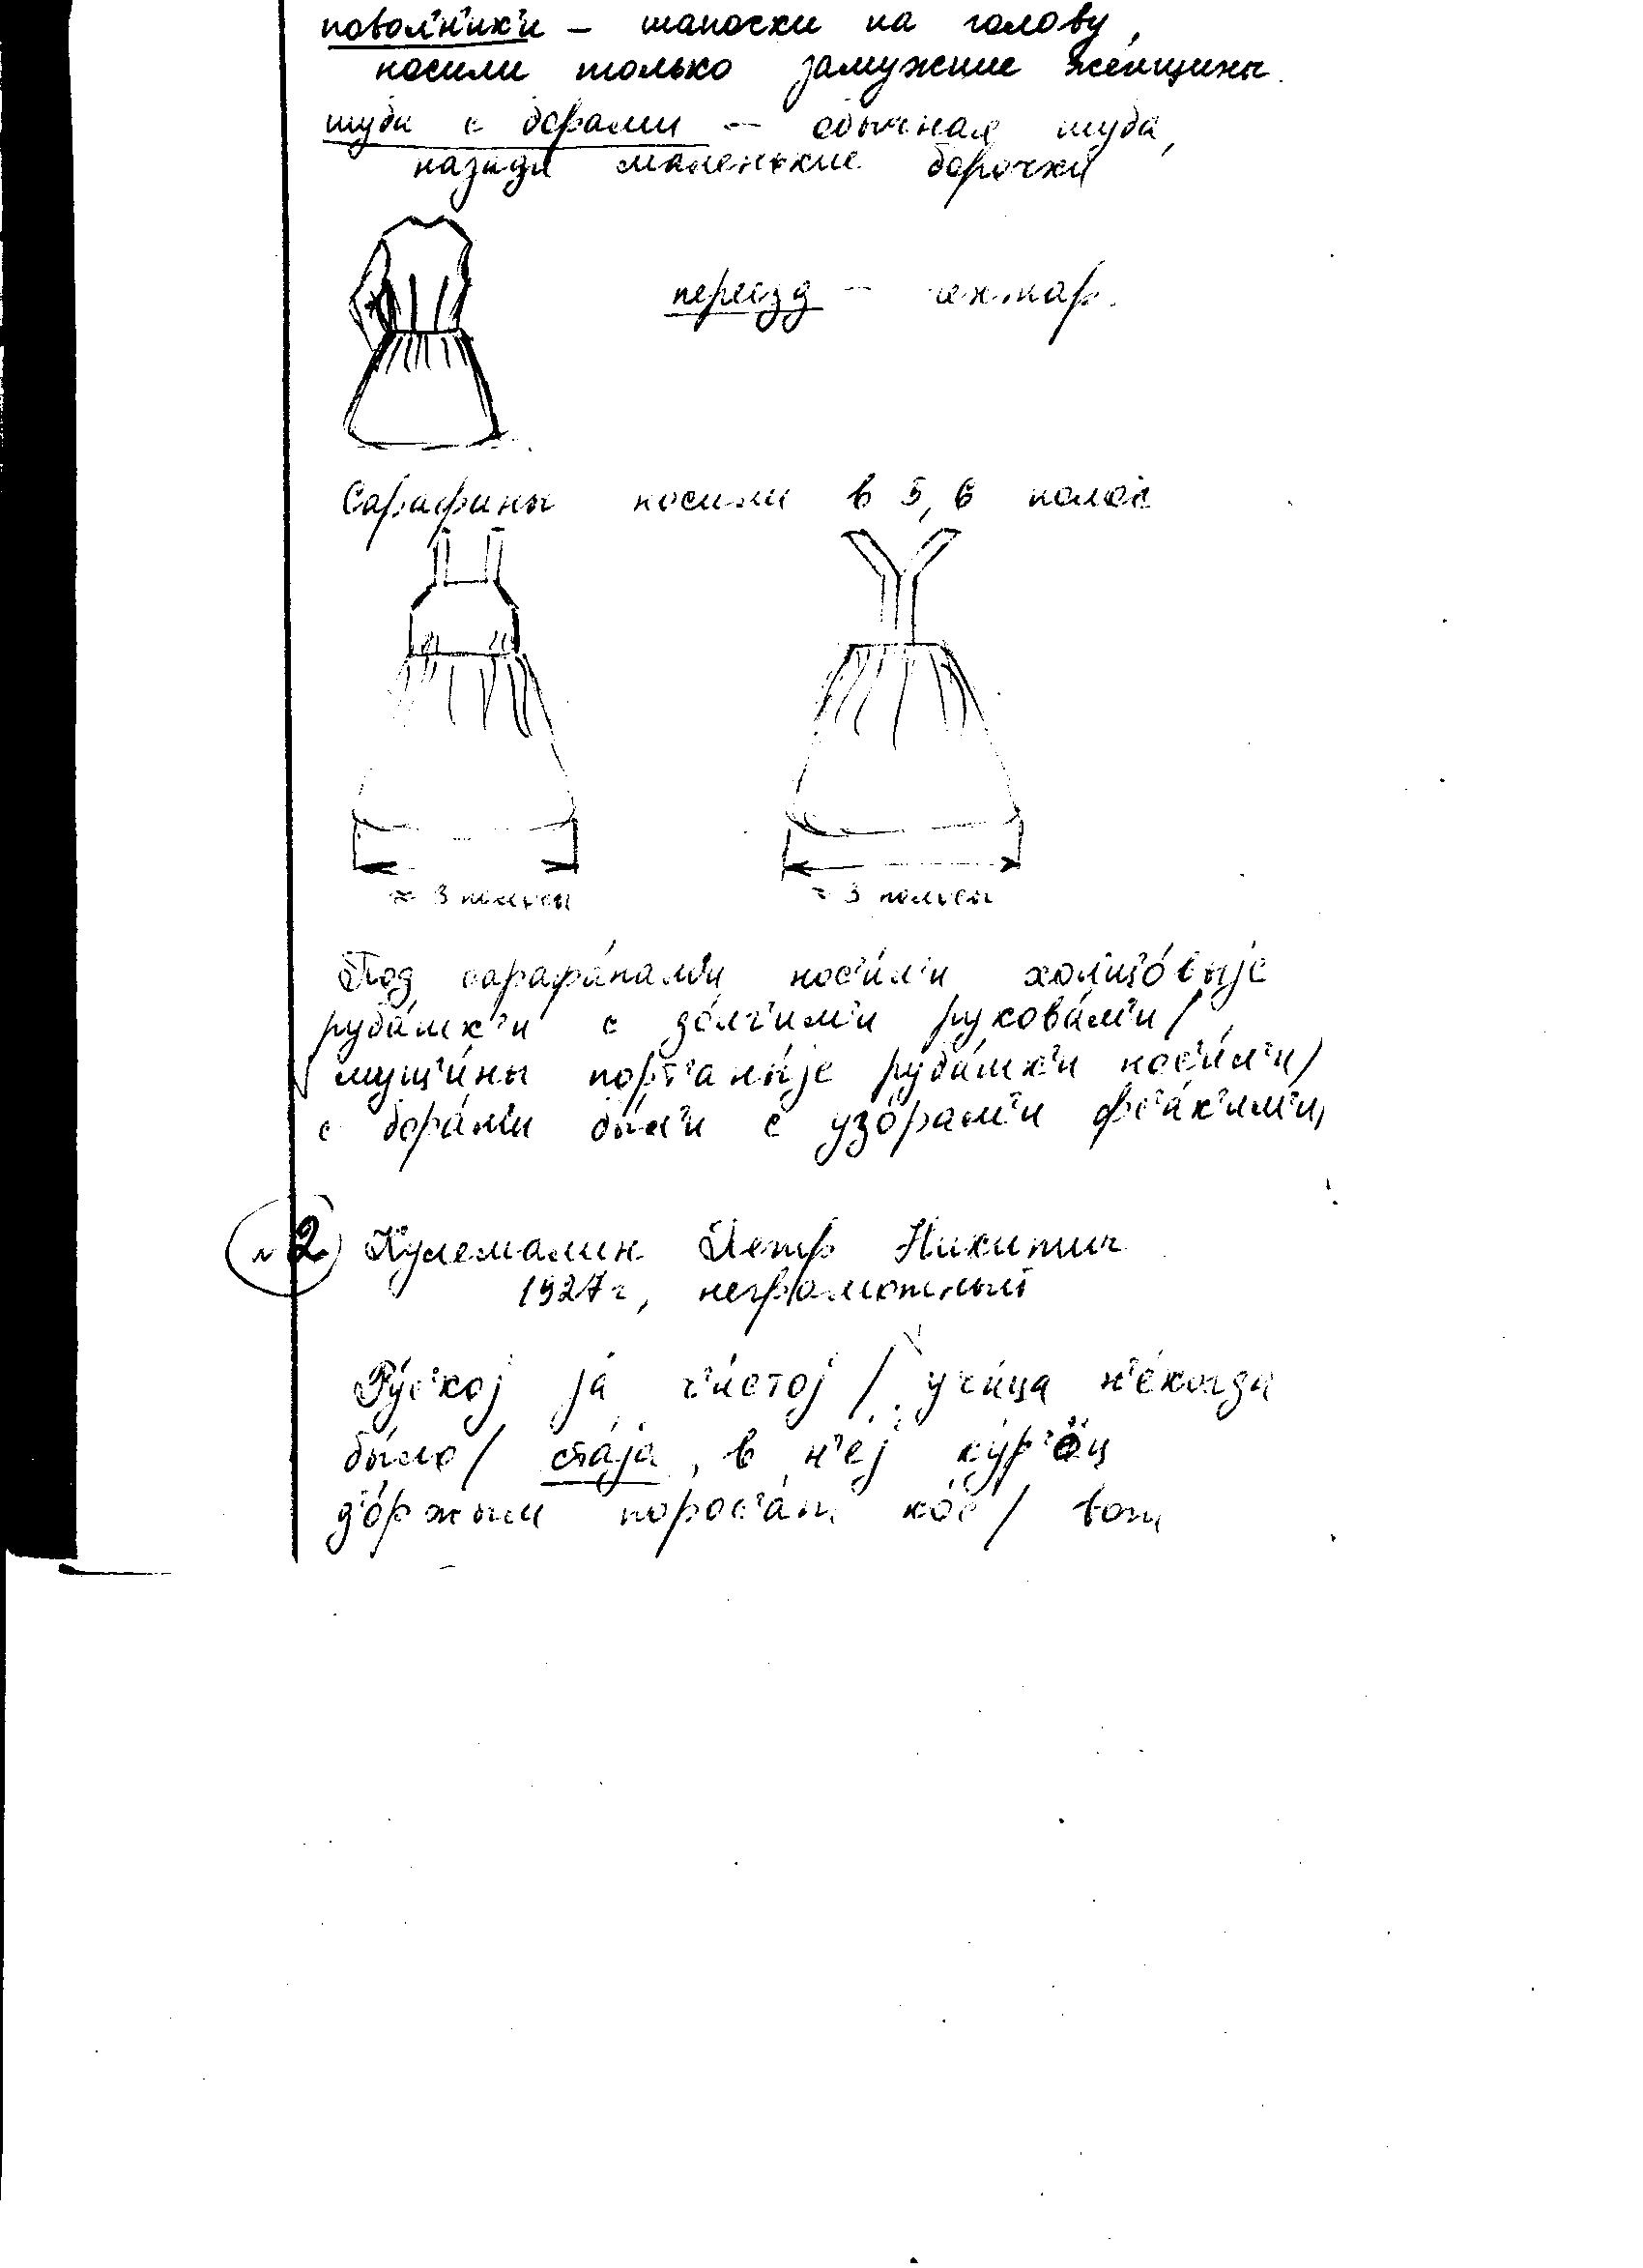 повол'н'ик'и – шапоски на голову,
носили только замужние женщины.
шуба с борами – обычная шуба,
назади маленькие борочки
переезд – гектар.
Сарафаны носили в 5, 6 полос
≈ 3 полосы
≈ 3 полосы
Под сарафа́нам'и нос'и́л'и холшо́выjе
руба́шк'и с до́лг'им'и рукова́м'и /
мущ'и́ны порт'аны́jе руба́шк'и нос'и́л'и /
с бора́м'и бы́л'и с узо́рам'и фс'а́к'им'и,
2 Кулемалин Петр Никитич
1927 г, неграмотный
Ру́скоj jа́ ч'и́стоj / учи́ца н'е́когда
бы́ло / ста́jа, в н'еj ку́р'ӧц
д'о́ржым порос'а́т ко́с / вот